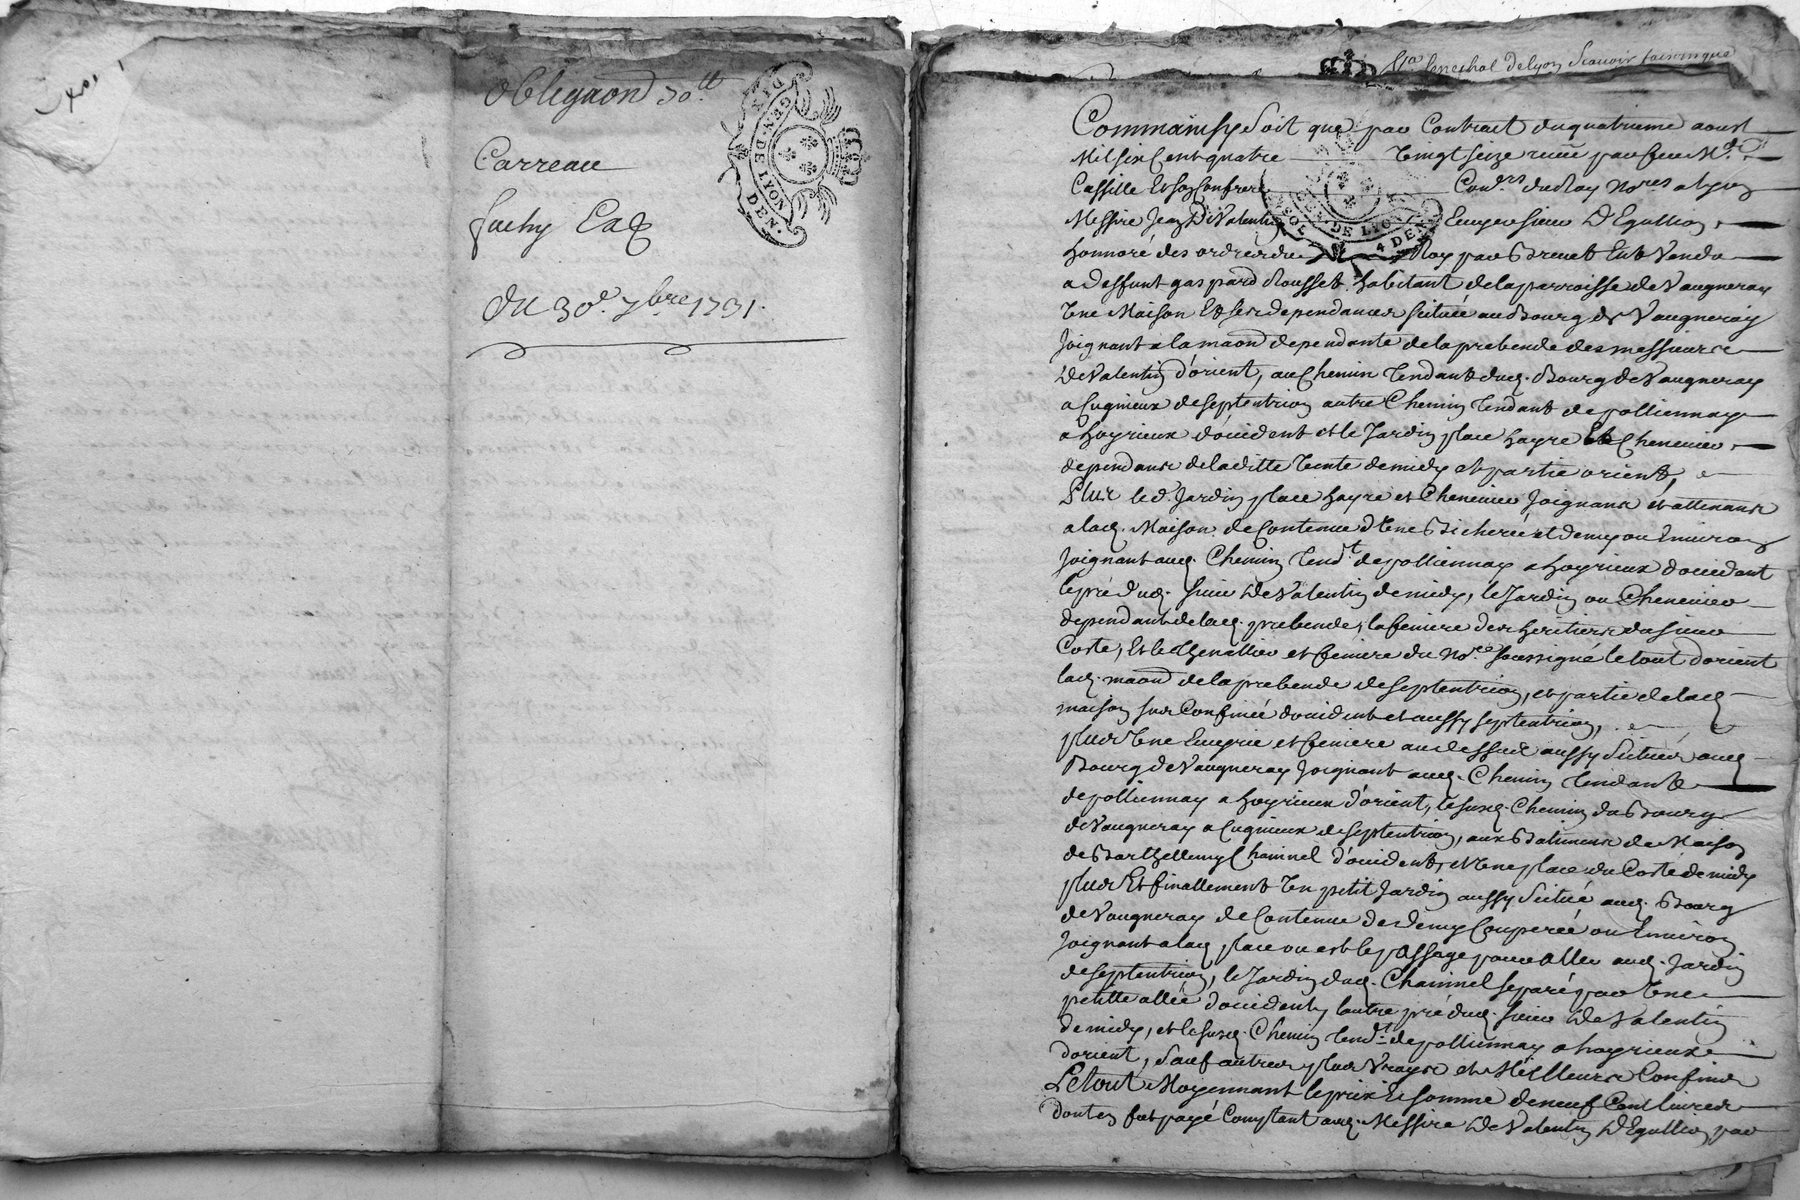 obligaon 30ᵗᵗ
Carreau
fachy
Du 30ᵉ 7bre 1731.
GEN. DE LYON
DEN.
Seneschal de Lyon Scavoir faisons que
Comme ainsy soit que par Contract du quatrieme aoust
Mil six Cent quatre vingt seize receu par feu Mᵉ
Cassille et son Confrere Conˡˡᵉʳˢ du Roy Noʳᵉˢ a Lyon
Messire Jean De Valentin Sieur D'Egullion
honnoré des ordres du Roy par Brevet Eut Vendu
a deffunt gaspard Rousset habitant de la parroisse de Vaugneray
Une Maison Et ses dependances scituée au Bourg de Vaugneray
Joignant a la maon dependante de la prebende des messieurs
De Valentin d'orient, au Chemin tendant dud. Bourg de Vaugneray
a Cugnieux de septentrion autre Chemin tendant de pollionnay
a hoyrieux d'occident et le Jardin place hayre Et Chenevier
dependans de la ditte vente de midy et partie orient,
Plus led. Jardin place hayre et Chenevier Joignans et attenans
a lad. Maison de Contenue d'Une Bicherée et demy ou Environ
Joignant aud. Chemin tendᵗ de pollionnay a hoyrieux d'occident
le pré dud. sieur De Valentin de midy, le Jardin ou Chenevier
dependant de lad. prebende, la feniere des heritiers du sieur
Coste, Et le Chenellier et feniere du Noʳᵉ soussigné le tout d'orient
lad. maon de la prebende de septentrion, et partie de lad
maison sus Confinée d'occident et aussy septentrion,
plus Une Ecurie et feniere au dessus aussy Scitués aud
Bourg de Vaugneray Joignant aud. Chemin tendant
de pollionnay a hoyrieux d'orient, le susd. Chemin du Bourg
de Vaugneray a Cugnieux de septentrion, aux Batimens de Maison
de Barthellemy Chainnel d'occident, et Une place du Costé de midy
plus Et finallement Un petit Jardin aussy Scitué aud. Bourg
de Vaugneray de Contenue de demy Couperée ou Environ
Joignant a lad place ou est le passage pour aller aud. Jardin
de septentrion, le Jardin dud. Chainnel separé par Une
petitte allée d'occident, l'autre pré dud. sieur De Valentin
de midy, et le susd. Chemin tendᵗ de pollionnay a hoyrieux
d'orient, sauf autres plus vrays et Meilleurs Confins
Le tout Moyennant le prix Et somme de neuf Cent livres
dont en fut payé Comptant aud. Messire De Valentin D'Egullion par